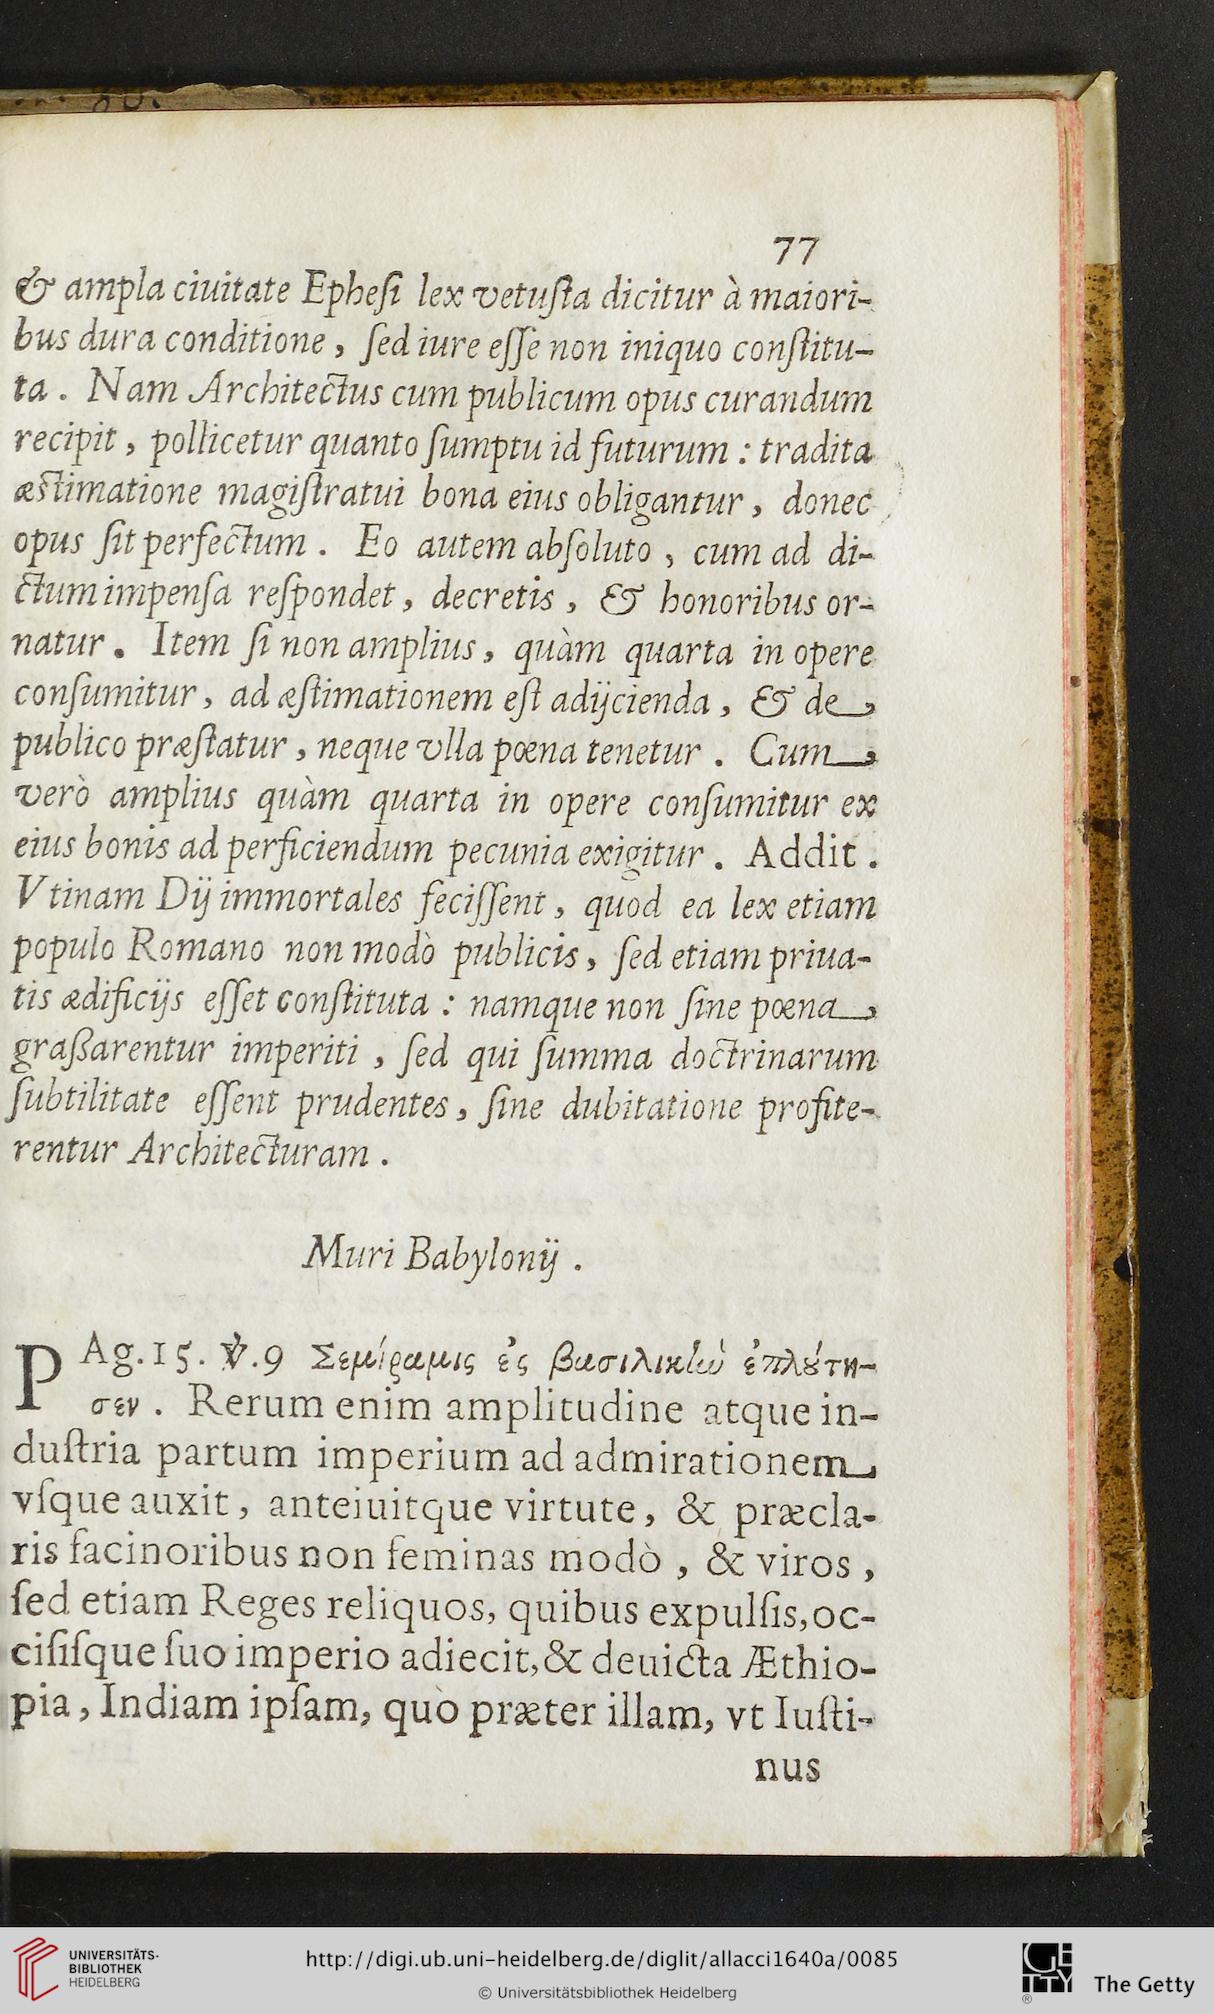 77
& ampla ciuitate Epheſi lex vetuſta dicitur à maiori-
bus dura conditione, ſed iure eſſe non iniquo conſtitu-
ta. Nam Architectus cum publicum opus curandum
recipit, pollicetur quanto ſumptu id futurum: tradita
æſtimatione magiſtratui bona eius obligantur, donec
opus ſit perfectum. Eo autem abſoluto, cum ad di-
ctum impenſa reſpondet, decretis, & honoribus or-
natur. Item ſi non amplius, quàm quarta in opere
conſumitur, ad æſtimationem eſt adijcienda, & de
publico præſtatur, neque vlla pœna tenetur. Cum
verò amplius quàm quarta in opere conſumitur ex
eius bonis ad perficiendum pecunia exigitur. Addit.
Vtinam Dij immortales feciſſent, quod ea lex etiam
populo Romano non modò publicis, ſed etiam priua-
tis ædificijs eſſet conſtituta: namque non ſine pœna
graßarentur imperiti, ſed qui ſumma doctrinarum
ſubtilitate eſſent prudentes, ſine dubitatione profite-
rentur Architecturam.
Muri Babylonij.
PAg. 15. ℣. 9 Σεμίραμις ἐς βασιλικὴν ἐπλούτη-
σεν. Rerum enim amplitudine atque in-
duſtria partum imperium ad admirationem
vſque auxit, anteiuitque virtute, & præcla-
ris facinoribus non feminas modò, & viros,
ſed etiam Reges reliquos, quibus expulſis, oc-
ciſiſque ſuo imperio adiecit, & deuicta Æthio-
pia, Indiam ipſam, quò præter illam, vt Iuſti-
nus
UNIVERSITÄTS-
BIBLIOTHEK
HEIDELBERG
http://digi.ub.uni-heidelberg.de/diglit/allacci1640a/0085
© Universitätsbibliothek Heidelberg
GETTY
The Getty